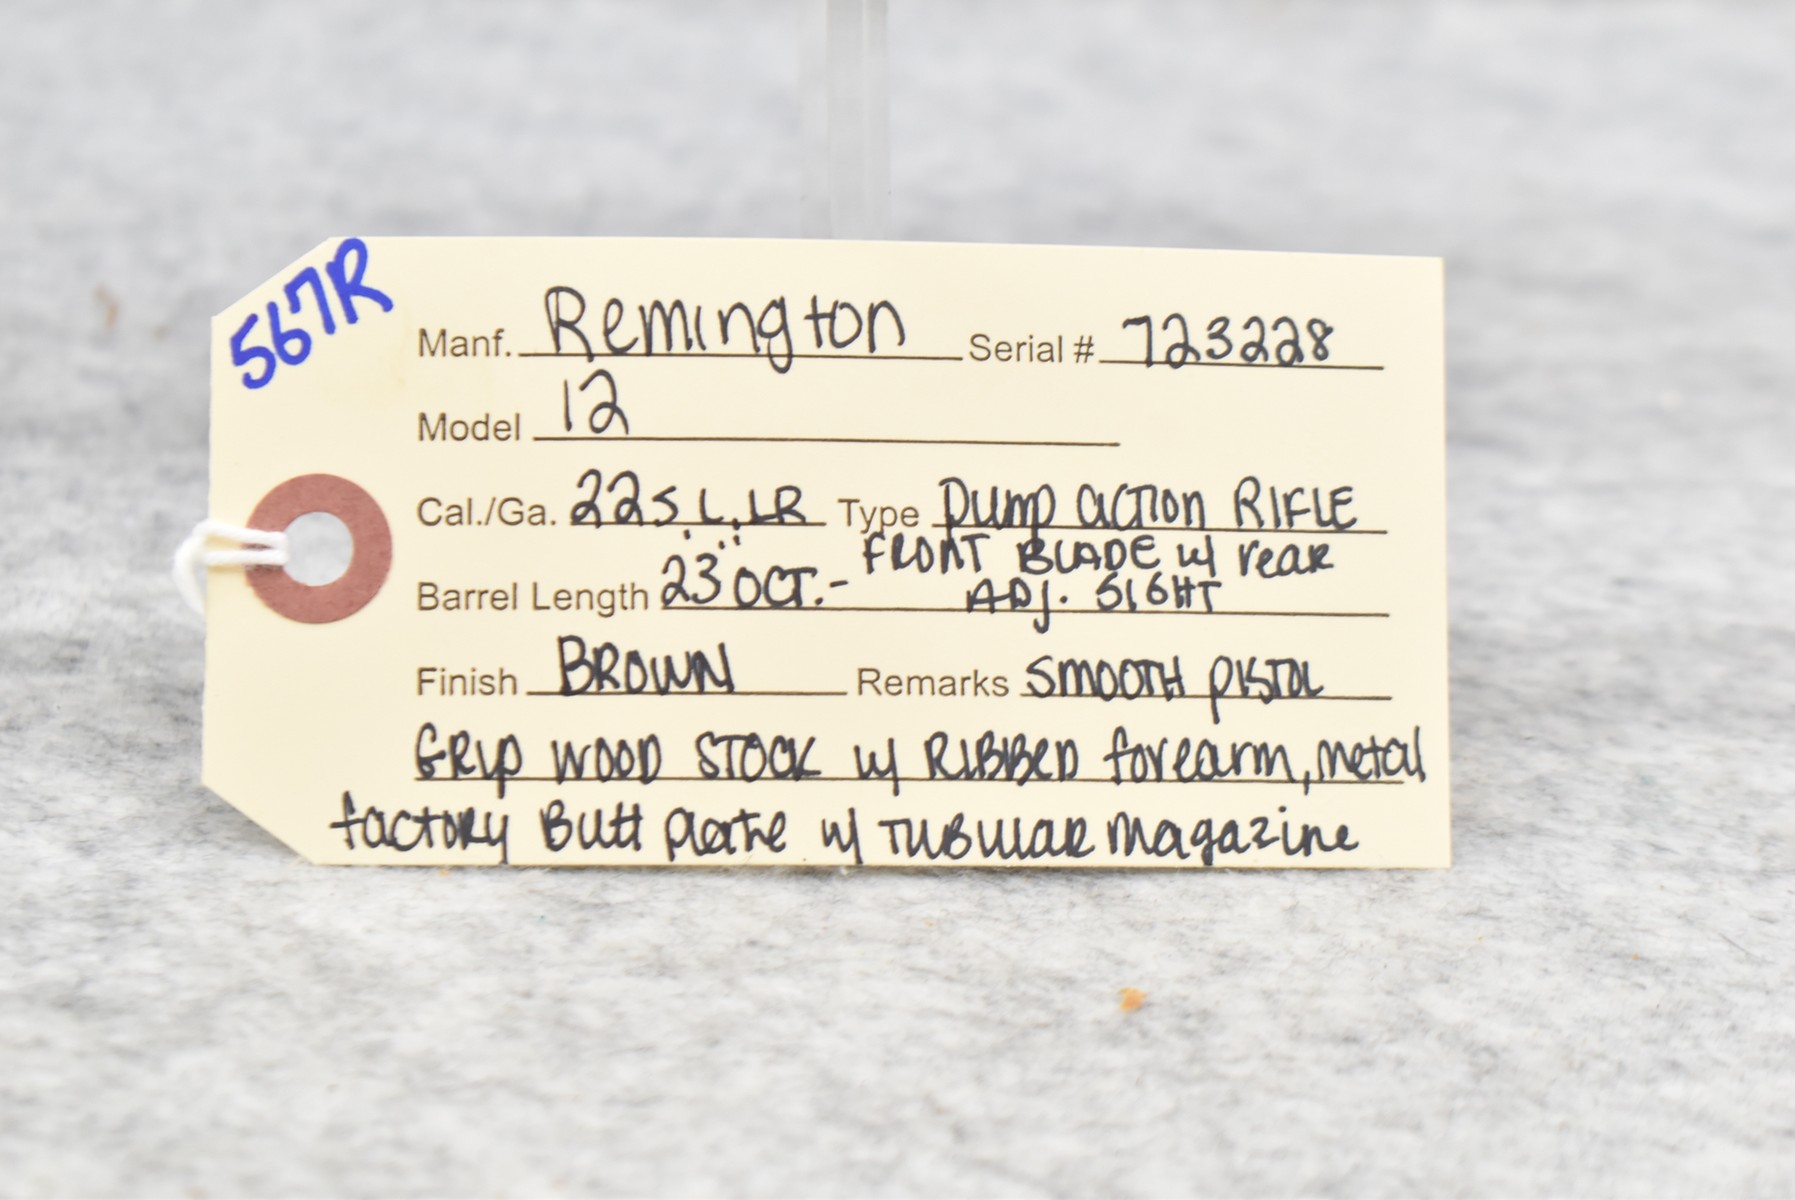 567R
Manf. Remington Serial # 723228
Model 12
Cal./Ga. 22 S, L, LR Type Pump action RIFLE
Barrel Length 23" OCT. - FRONT BLADE w/ rear
ADJ. SIGHT
Finish BROWN Remarks SMOOTH PISTOL
GRIP WOOD STOCK w/ RIBBED forearm, metal
factory Butt plate w/ TUBULAR magazine